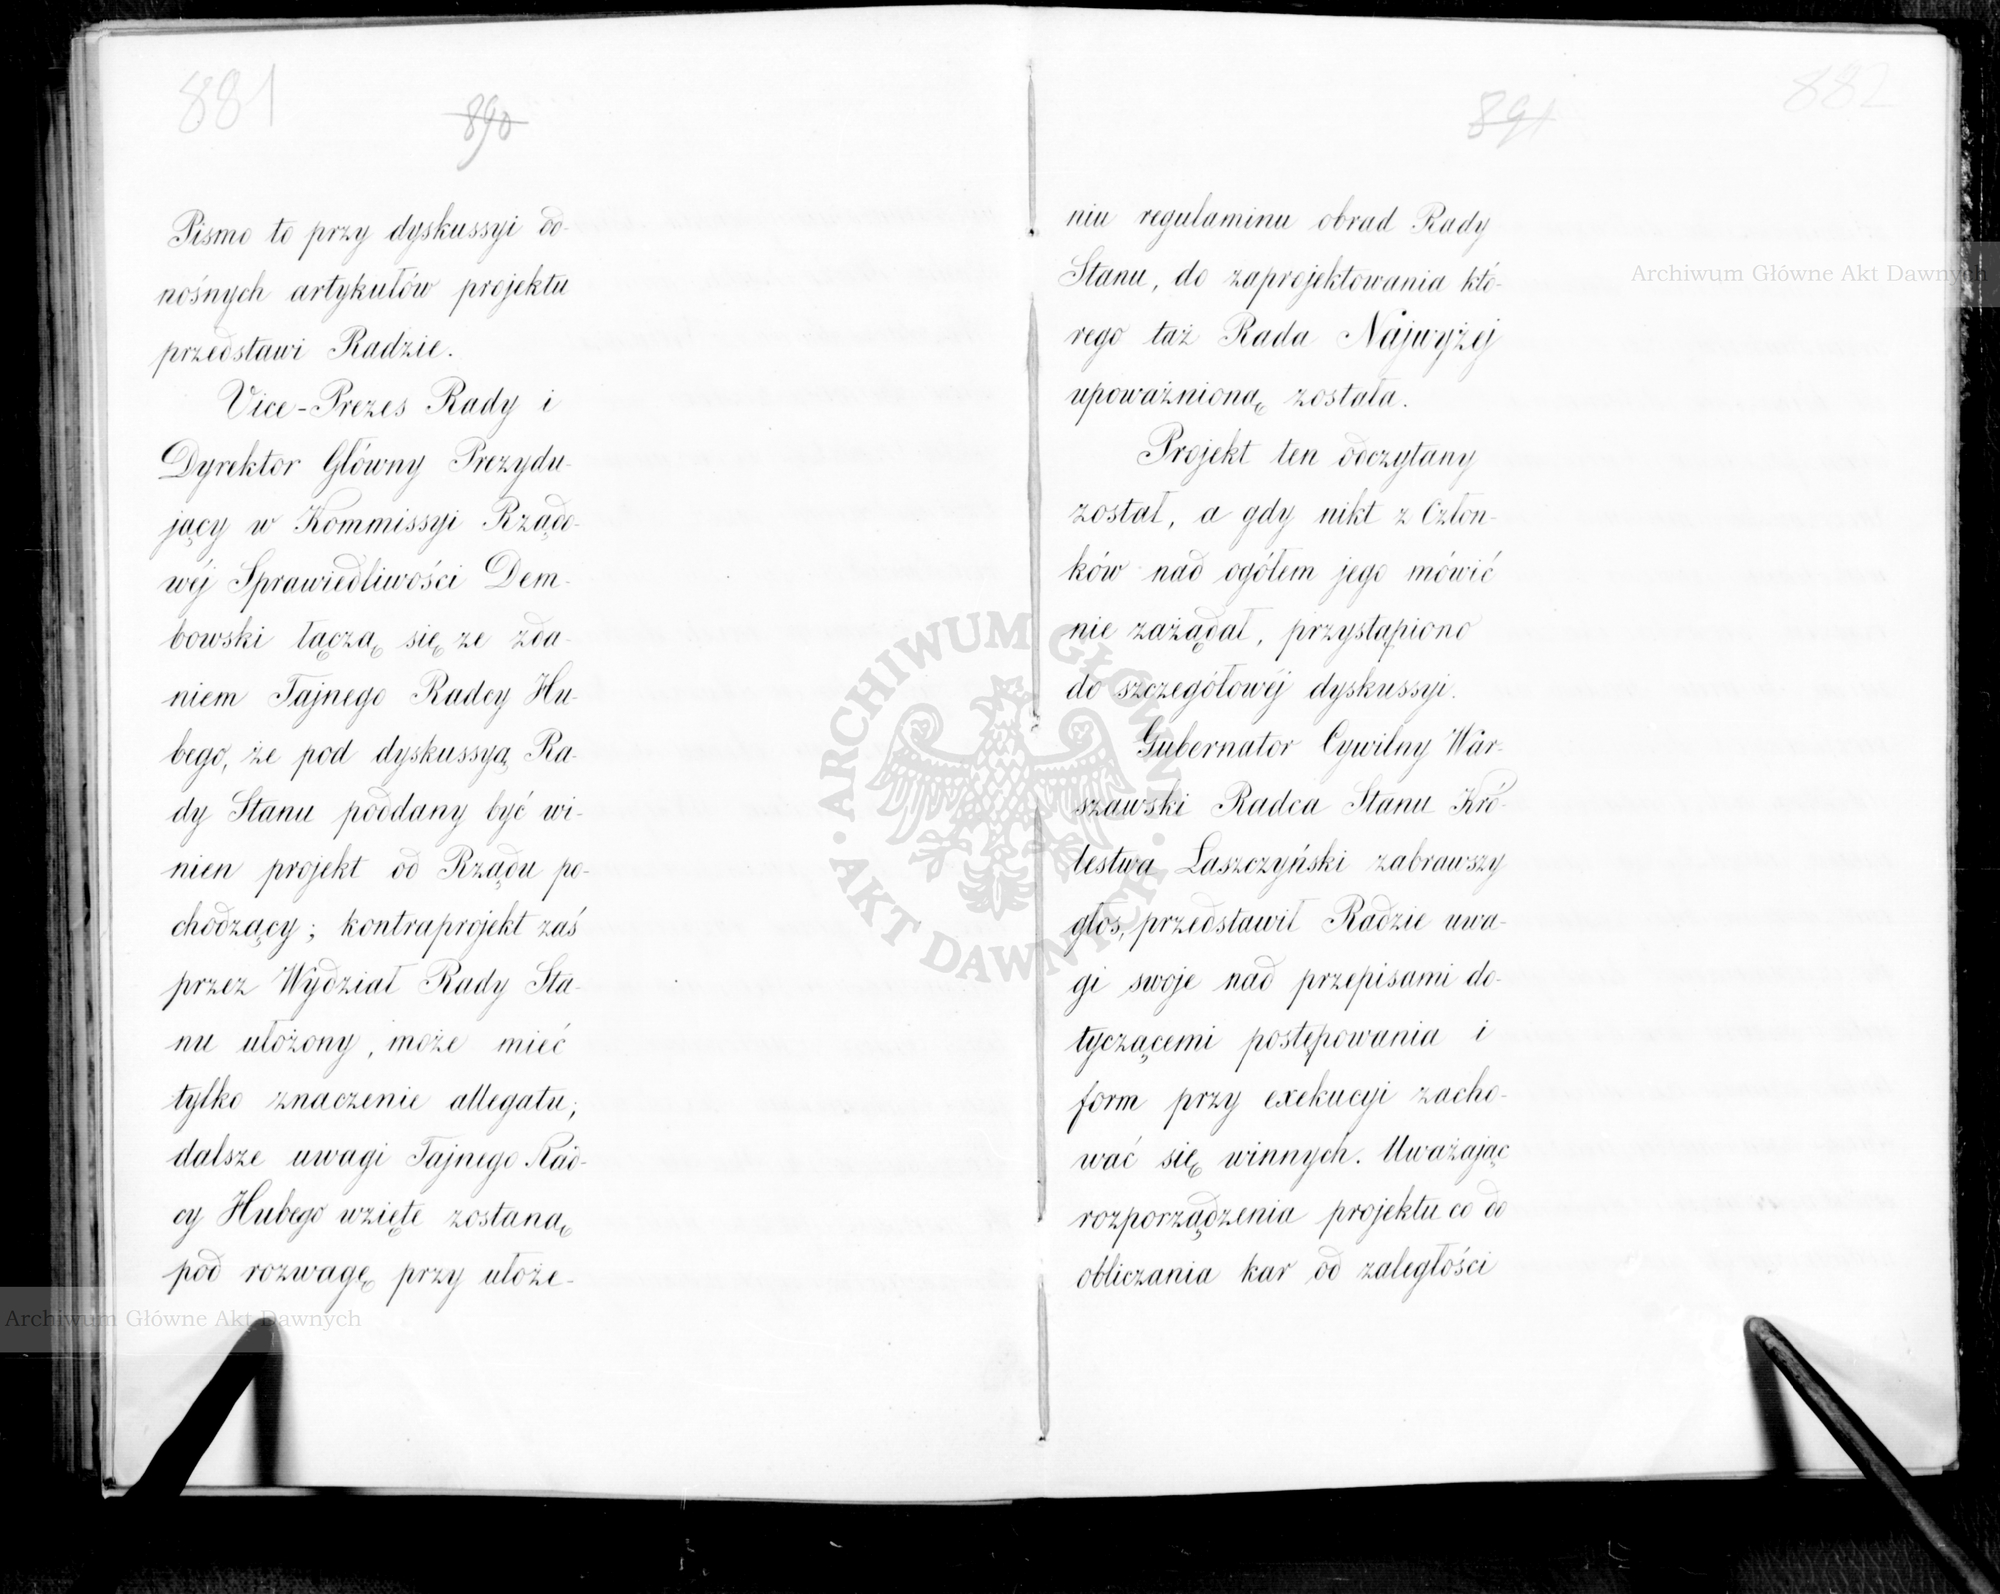 881
890
Pismo to przy dyskussyi do-
nośnych artykułów projektu
przedstawi Radzie.
Vice-Prezes Rady i
Dyrektor Główny Prezydu-
jący w Kommissyi Rządo-
wéj Sprawiedliwości Dem-
bowski łączą się ze zda-
niem Tajnego Radcy Hu-
bego, że pod dyskussyą Ra-
dy Stanu poddany być wi-
nien projekt od Rządu po-
chodzący; kontraprojekt zaś
przez Wydział Rady Sta-
nu ułożony, może mieć
tylko znaczenie allegatu;
dalsze uwagi Tajnego Rad-
cy Hubego wzięte zostaną
pod rozwagę przy ułoże-
891
882
niu regulaminu obrad Rady
Stanu, do zaprojektowania któ-
rego taż Rada Najwyżej
upoważnioną została.
Projekt ten odczytany
został, a gdy nikt z Człon-
ków nad ogółem jego mówić
nie zażądał, przystąpiono
do szczegółowéj dyskussyi.
Gubernator Cywilny War-
szawski Radca Stanu Kró-
lestwa Łaszczyński zabrawszy
głos, przedstawił Radzie uwa-
gi swoje nad przepisami do-
tyczącemi postępowania i
form przy exekucyi zacho-
wać się winnych. Uważając
rozporządzenia projektu co do
obliczania kar od zaległości
Archiwum Główne Akt Dawnych
Archiwum Główne Akt Dawnych
ARCHIWUM GŁÓWNE AKT DAWNYCH